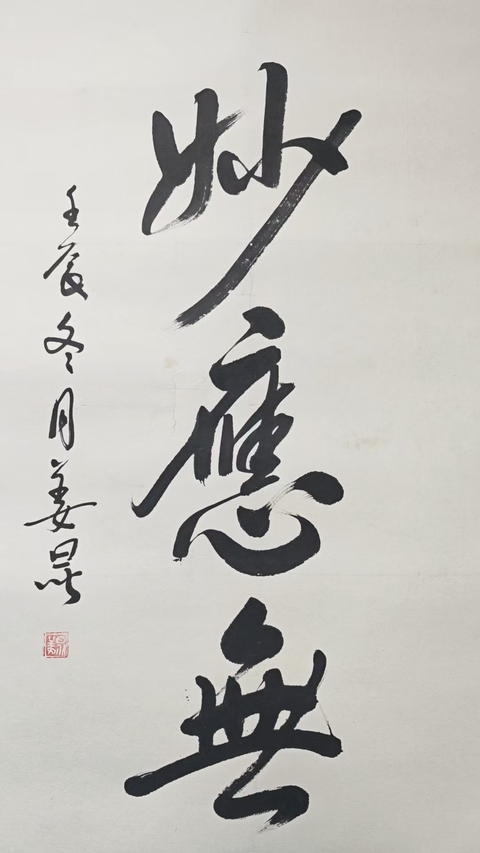 妙應無
壬辰冬月姜昆